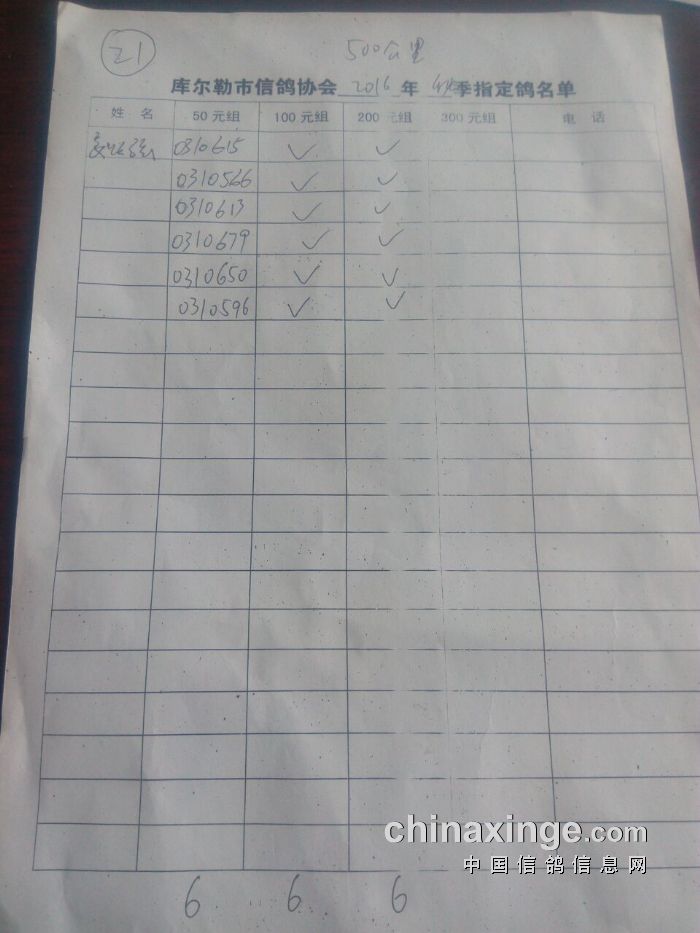 21
500公里
库尔勒市信鸽协会 2016 年 秋季指定鸽名单
姓 名 50元组 100元组 200元组 300元组 电 话
0310615 ✓ ✓
0310566 ✓ ✓
0310613 ✓ ✓
0310679 ✓ ✓
0310650 ✓ ✓
0310596 ✓ ✓
chinaxinge.com
中国信鸽信息网
6 6 6